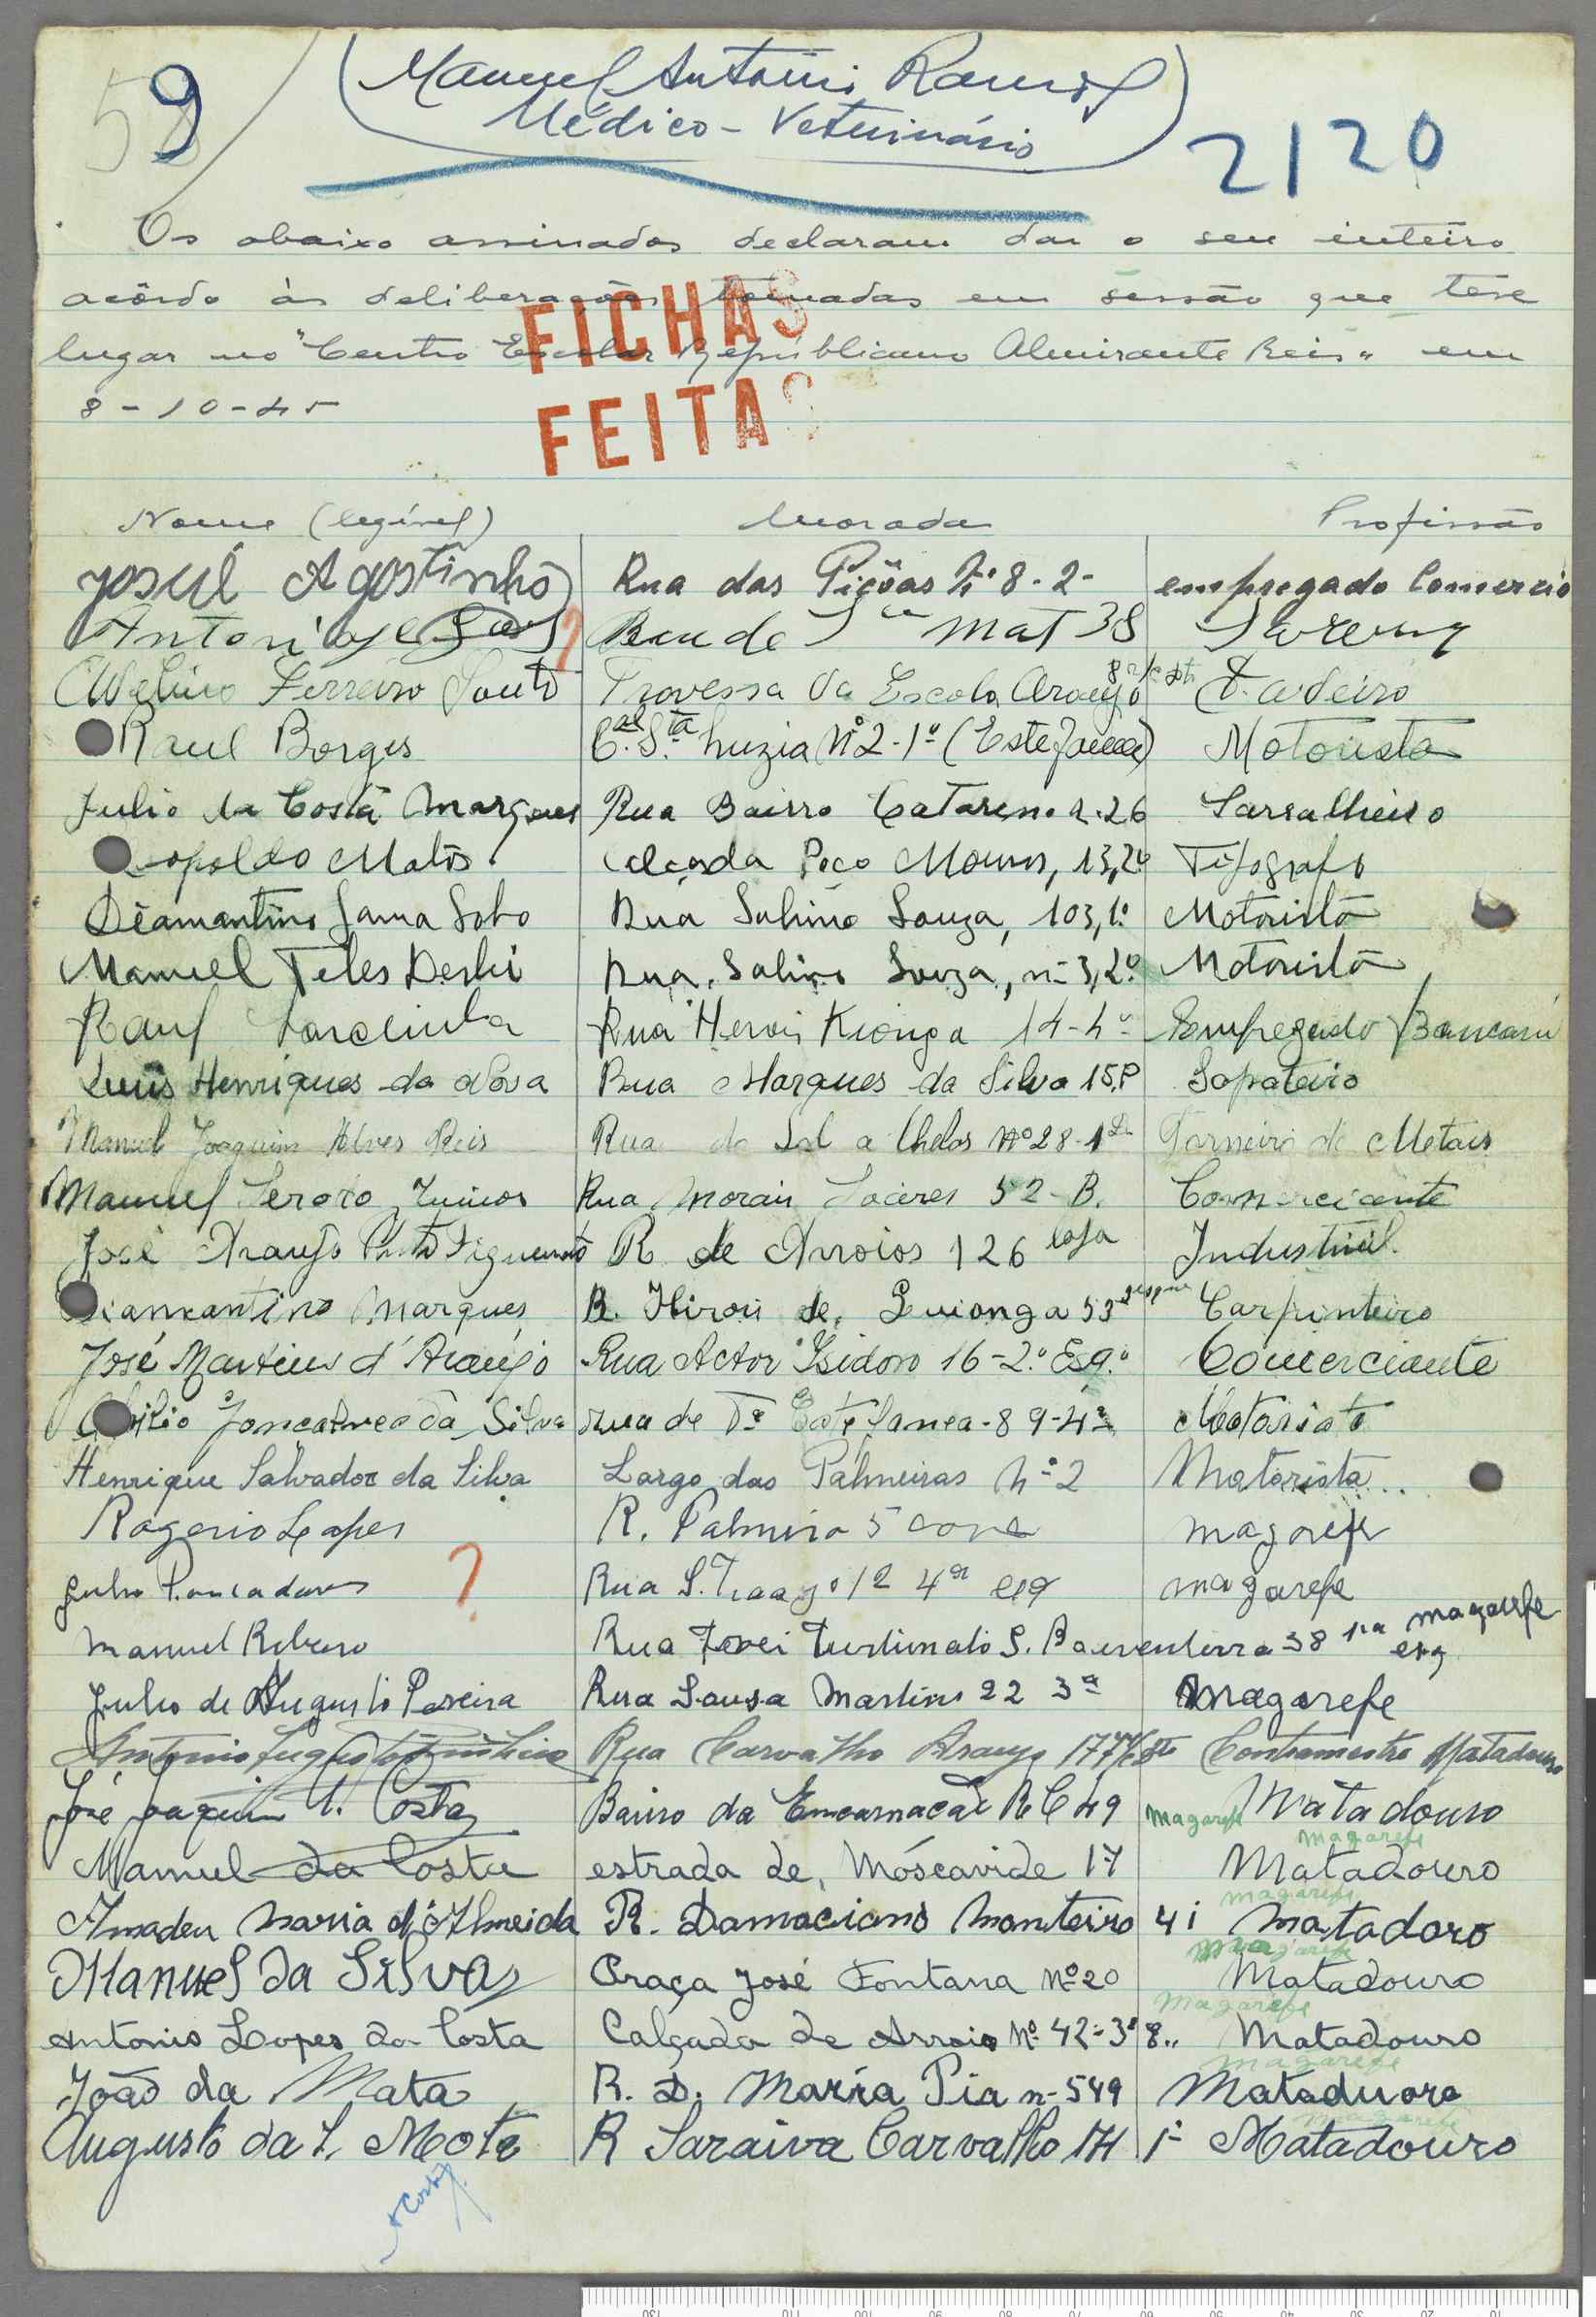 59
(Manuel António Ramos)
Médico-Veterinário
2120
Os abaixo assinados declaram dar o seu inteiro
acôrdo às deliberações tomadas em sessão que teve
lugar no "Centro Escolar Républicano Almirante Reis" em
8-10-45
FICHAS
FEITAS
Nome (legível) Morada Profissão
Josué Agostinho Rua das Picôas Nº 8-2- empregado Comercio
Antonio ?
Avelino Ferreiro Souto Travessa da Escola Araujo 8 r/c
Raul Borges C.al S.ta Luzia Nº 2-1º (Estefania) Motorista
Julio da Costa Marques Rua Bairro Catareno 26 Sarralheiro
opoldo Matos Calçada Poço Mouros, 13,2º Tipografo
Diamantino Gama Soto Rua Sabino Souza, 103,1º Motorista
Manuel Teles Rua Sabino Souza, nº 3,2º Motorista
Raul Rua Herois Kionga 14-4º Empregado Bancario
Luis Henriques da Rua Marques da Silva 15 Sapateiro
Manuel Joaquim Alves Reis Rua do Sol a Chelas Nº 28-1º Torneiro de Metais
Manuel Junior Rua Morais Soares 52-B. Comerciante
José Araujo Pinto R. de Arroios 126 loja Industrial.
iamantino Marques R. Hirois de Quionga 53 Carpinteiro
José Martins d'Araújo Rua Actor Isidoro 16-2.º Esq.º Comerciante
Gonçalves da Silva Rua de Dª Estefanea-89-4º Motorista
Henrique Salvador da Silva Largo das Palmeiras Nº 2 Motorista
Rogerio Lopes R. Palmira 5 cave magarefe
Julio ? Rua S. 12 4º esq magarefe
Manuel Ribeiro Rua S. Boaventura 38 esq magarefe
Julio de Augusto Pereira Rua Sousa Martins 22 3º Magarefe
Antonio Rua Carvalho Araujo 177 Contramestre Matadouro
José Joaquim Costa Bairro da Encarnacão R C 49 Magarefe Matadouro
magarefe
Manuel da Costa estrada de Móscavide 17 Matadouro
magarefe
Amadeu Maria d'Almeida R. Damaciano Monteiro 41 Matadoro
magarefe
Manuel da Silva Praça José Fontana Nº 20 Matadouro
Magarefe
Antonio Lopes da Costa Calçada de Arroios Nº 42-3º E.. Matadouro
magarefe
João da Mata R. D. Maria Pia n-549 Mataduoro
magarefe
Augusto da S. Mota R Saraiva Carvalho 174 1º Matadouro